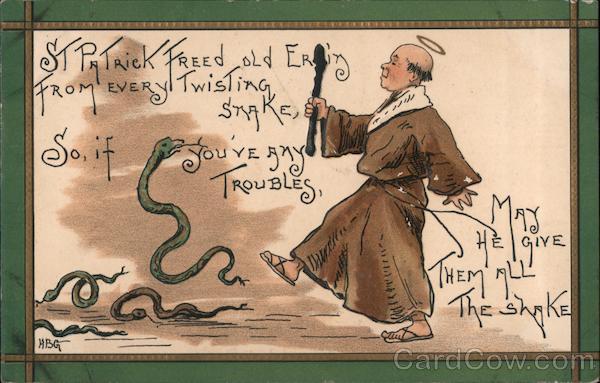 St Patrick Freed old Erin
From every Twisting
snake,
So, if you've any
Troubles,
May
He give
Them all
The shake
HBG
CardCow.com